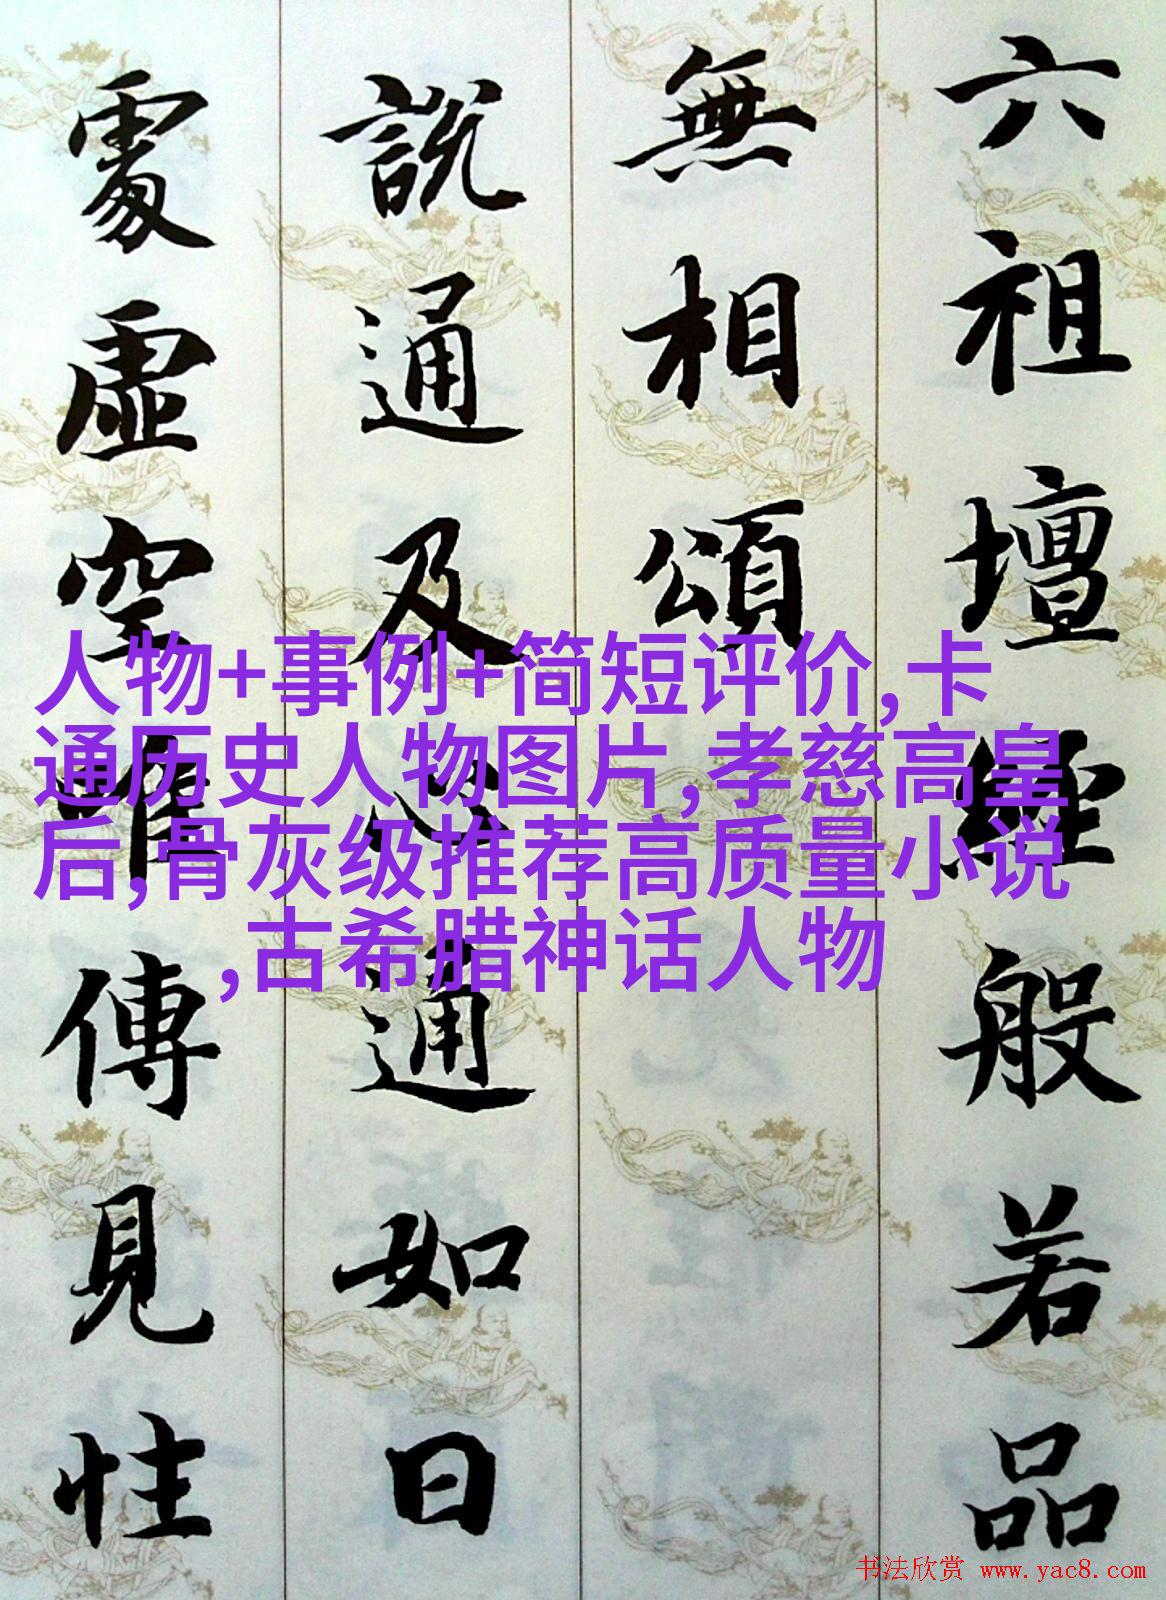 六祖壇經般若品
無相頌
說通及心通如日
處虛空唯傳見性
人物+事例+简短评价,卡
通历史人物图片,孝慈高皇
后,骨灰级推荐高质量小说
,古希腊神话人物
书法欣赏 www.yac8.com